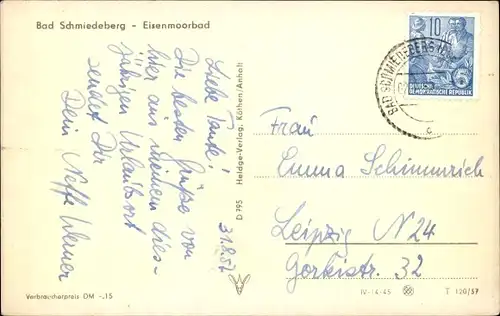 Bad Schmiedeberg - Eisenmoorbad
31.8.57
Liebe Tante!
Die besten Grüße von
hier aus meinem dies-
jährigen Urlaubsort
sendet Dir
Dein Neffe Werner
D 795 Heldge-Verlag, Köthen/Anhalt
10
DEUTSCHE
DEMOKRATISCHE REPUBLIK
BAD SCHMIEDEBERG
c
Frau
Emma Schimmrich
Leipzig N24
Gorkistr. 32
Verbraucherpreis DM -,15
IV-14-45
T 120/57